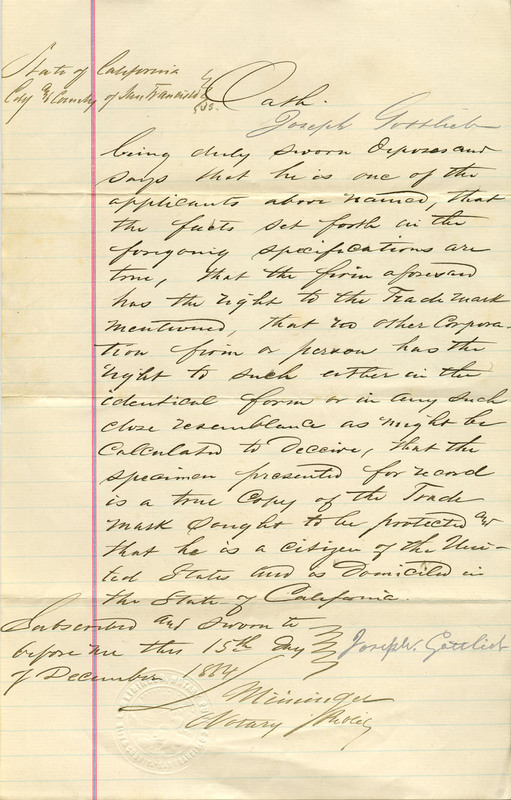 State of California
City and County of San Francisco } ss. Oath.
Joseph Gottlieb
being duly sworn deposes and
says that he is one of the
applicants above named, that
the facts set forth in the
foregoing specifications are
true, that the firm aforesaid
has the right to the Trade mark
mentioned, that no other Corpora-
tion firm or person has the
right to such either in the
identical form or in any such
close resemblance as might be
calculated to Deceive, that the
specimen presented for record
is a true Copy of the Trade
mark sought to be protected and
that he is a citizen of the Uni-
ted States and is Domiciled in
the State of California.
Subscribed and sworn to
before me this 15th Day } Joseph. Gottlieb
of December 1884
Meininger
Notary Public